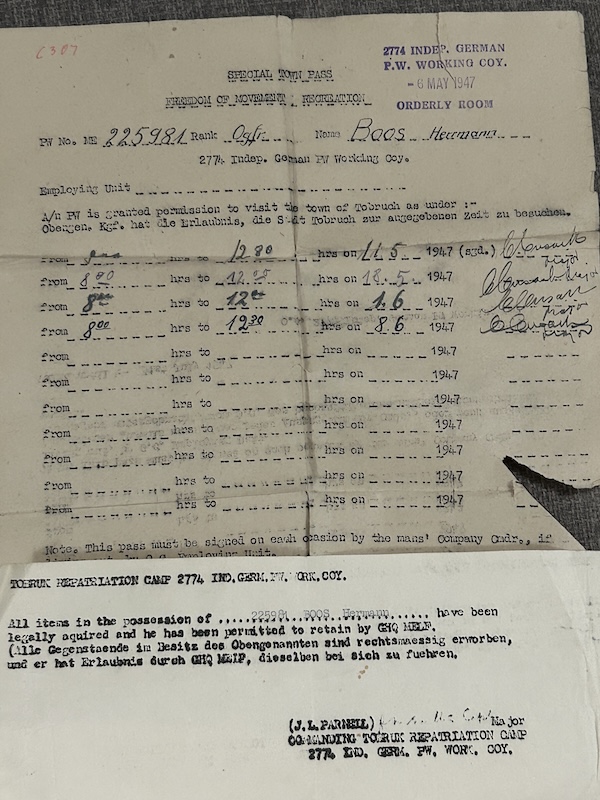 6307
2774 INDEP. GERMAN
P.W. WORKING COY.
- 6 MAY 1947
ORDERLY ROOM
SPECIAL TOWN PASS
FREEDOM OF MOVEMENT RECREATION
PW No. ME 225981 Rank Ogfr. Name Boos Herrmann
2774 Indep. German PW Working Coy.
Employing Unit
A/n PW is granted permission to visit the town of Tobruch as under :-
Obengen. Kgf. hat die Erlaubnis, die Stadt Tobruch zur angegebenen Zeit zu besuchen.
from hrs to hrs on 11.5 1947 (sgd.)
from 8 00 hrs to hrs on 18.5. 1947 Major
from 8 00 hrs to 12 hrs on 1.6 1947 Major
from 8 00 hrs to 19 30 hrs on 8.6 1947 Major
from hrs to hrs on 1947
from hrs to hrs on 1947
from hrs to hrs on 1947
from hrs to hrs on 1947
from hrs to hrs on 1947
from hrs to hrs on 1947
from hrs to hrs on 1947
Note. This pass must be signed on each ocasion by the mans' Company Cmdr., if
TOBRUK REPATRIATION CAMP 2774 IND.GERM.PW.WORK.COY.
All items in the possession of 225981 BOOS Hermann have been
legally aquired and he has been permitted to retain by GHQ MELF.
(Alle Gegenstaende im Besitz des Obengenannten sind rechtsmaessig erworben,
und er hat Erlaubnis durch GHQ MELF, dieselben bei sich zu fuehren.
(J.L.PARNELL) Major
COMMANDING TOBRUK REPATRIATION CAMP
2774 IND. GERM. PW. WORK. COY.